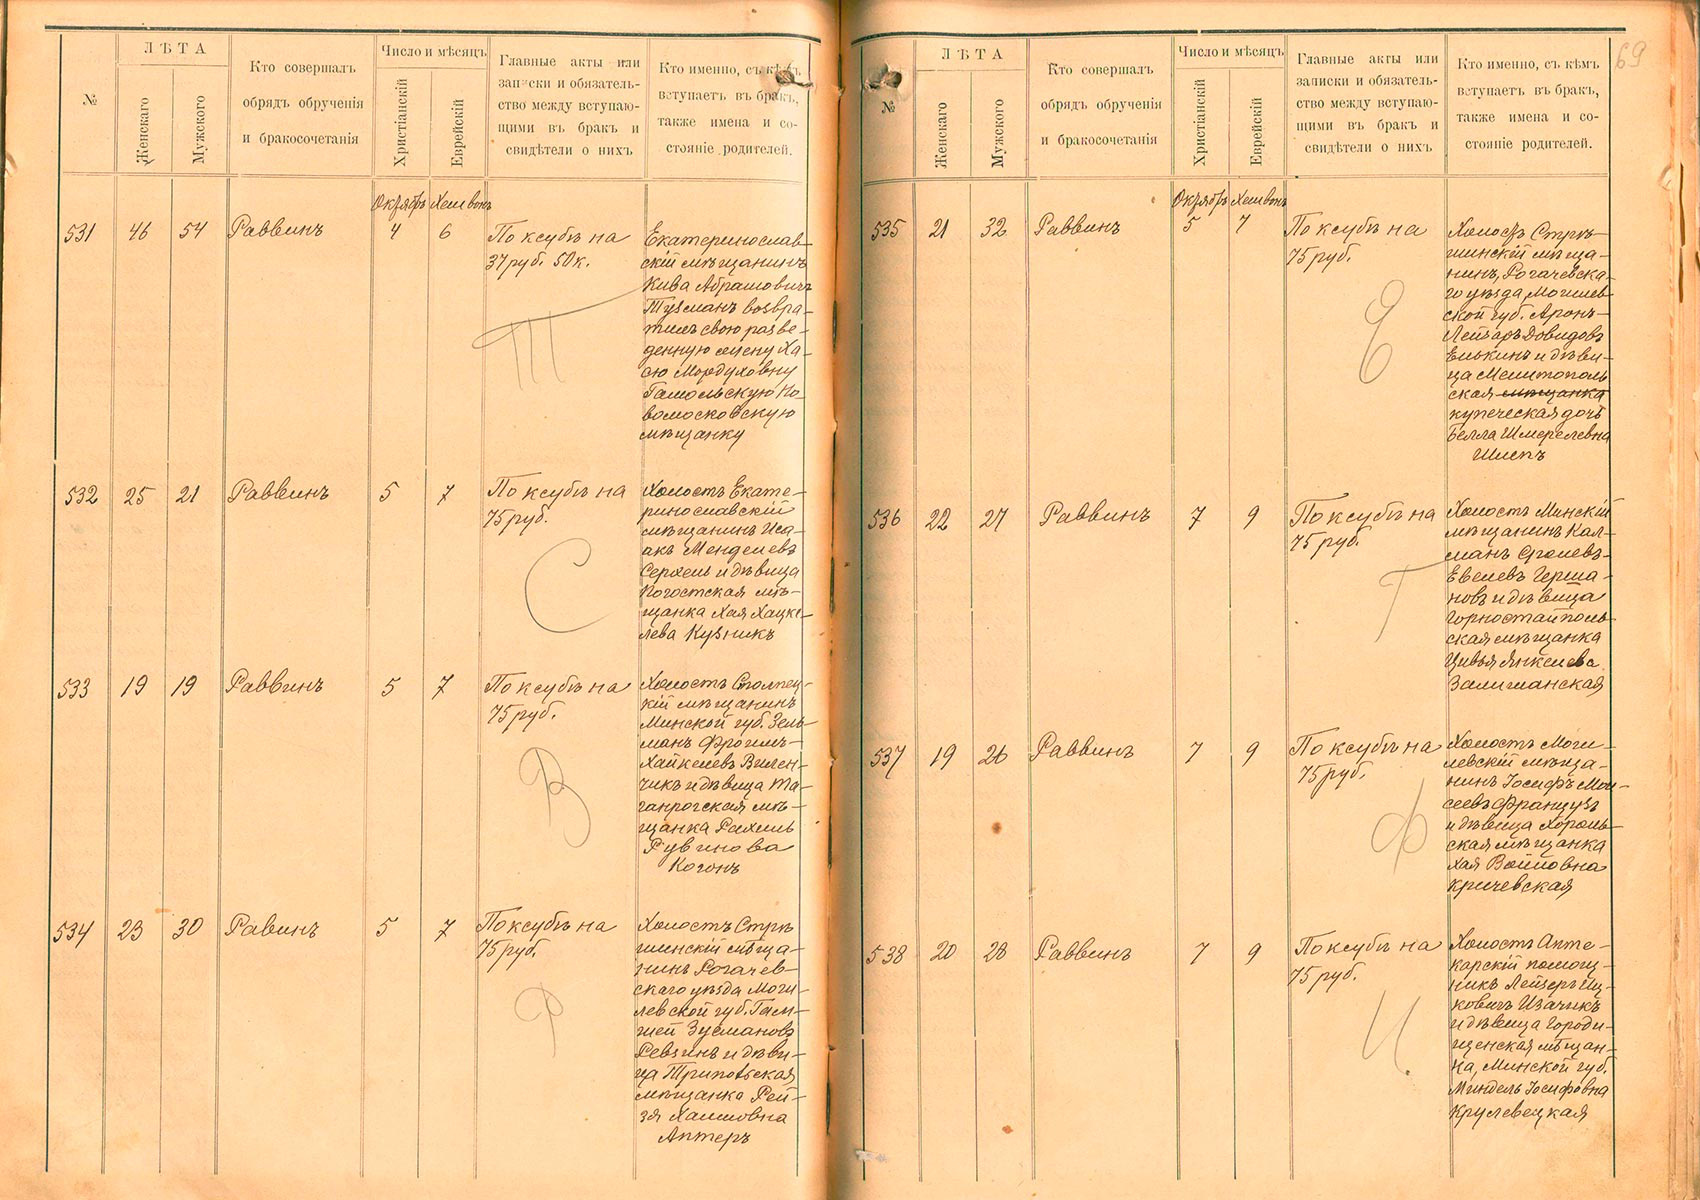 №
ЛѢТА
Женскаго
Мужского
Кто совершалъ
обрядъ обрученія
и бракосочетанія
Число и мѣсяцъ
Христіанскій
Еврейскій
Главные акты или
записки и обязатель-
ство между вступаю-
щими въ бракъ и
свидѣтели о нихъ
Кто именно, съ кѣмъ
вступаетъ въ бракъ,
также имена и со-
стояніе родителей.
Октябрь Хешвонъ
531 46 54 Раввинъ 4 6
По ксубѣ на
37 руб. 50 к.
Т
Екатеринослав-
скій мѣщанинъ
Кива Абрамовичъ
Тузманъ возвра-
тилъ свою разве-
денную жену Ха-
сю Мордуховну
Гамольскую Но-
вомосковскую
мѣщанку
532 25 21 Раввинъ 5 7
По ксубѣ на
75 руб.
С
Холостъ Екате-
ринославскій
мѣщанинъ Иса-
акъ Менделевъ
Серхель и дѣвица
Погостская мѣ-
щанка Хая Хацке-
лева Кузникъ
533 19 19 Раввинъ 5 7
По ксубѣ на
75 руб.
В
Холостъ Столпец-
кій мѣщанинъ
Минской губ. Зель-
манъ Фроимъ-
Хайкелевъ Вилен-
чикъ и дѣвица Та-
ганрогская мѣ-
щанка Рахиль
Рувинова
Когонъ
534 23 30 Равинъ 5 7
По ксубѣ на
75 руб.
Р
Холостъ Стрѣ
шинскій мѣща-
нинъ Рогачев-
скаго уѣзда Моги-
левской губ. Гам-
шей Зусмановъ
Ревзинъ и дѣви-
ца Трипольская
мѣщанка Рей-
зя Хаимовна
Аптеръ
69
№
ЛѢТА
Женскаго
Мужского
Кто совершалъ
обрядъ обрученія
и бракосочетанія
Число и мѣсяцъ
Христіанскій
Еврейскій
Главные акты или
записки и обязатель-
ство между вступаю-
щими въ бракъ и
свидѣтели о нихъ
Кто именно, съ кѣмъ
вступаетъ въ бракъ,
также имена и со-
стояніе родителей.
Октябрь Хешвонъ
535 21 32 Раввинъ 5 7
По ксубѣ на
75 руб.
Е
Холостъ Стрѣ-
шинскій мѣща-
нинъ, Рогачевска-
го уѣзда, Могилев-
ской губ. Аронъ-
Лейзаръ Довидовъ
Елькинъ и дѣви-
ца Мелитополь
ская мѣщанка
купеческая дочь
Белла Шмерелевна
Шлепъ
536 22 27 Раввинъ 7 9
По ксубѣ на
75 руб.
Г
Холостъ Минскій
мѣщанинъ Кал-
манъ Сролевъ-
Евелевъ Герша-
новъ и дѣвица
Горностайполь-
ская мѣщанка
Цивья Янкелева
Залишанская
537 19 26 Раввинъ 7 9
По ксубѣ на
75 руб.
Ф
Холостъ Моги-
левскій мѣща-
нинъ Іосифъ Мои-
сеевъ Французъ
и дѣвица Хороль-
ская мѣщанка
Хая Вольовна
Кричевская
538 20 28 Раввинъ 7 9
По ксубѣ на
75 руб.
И
Холостъ Апте-
карскій помощ-
никъ Лейзеръ Иц-
ковичъ Изачикъ
и дѣвица Городи-
щенская мѣщан-
ка, Минской губ.
Миндель Іосифовна
Крулевецкая